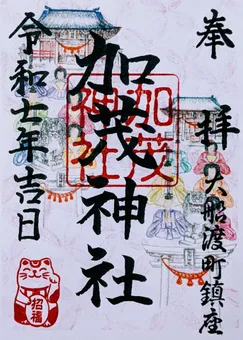 奉拝
大船渡町鎮座
加茂神社
加茂
神社
令和七年吉日
招福